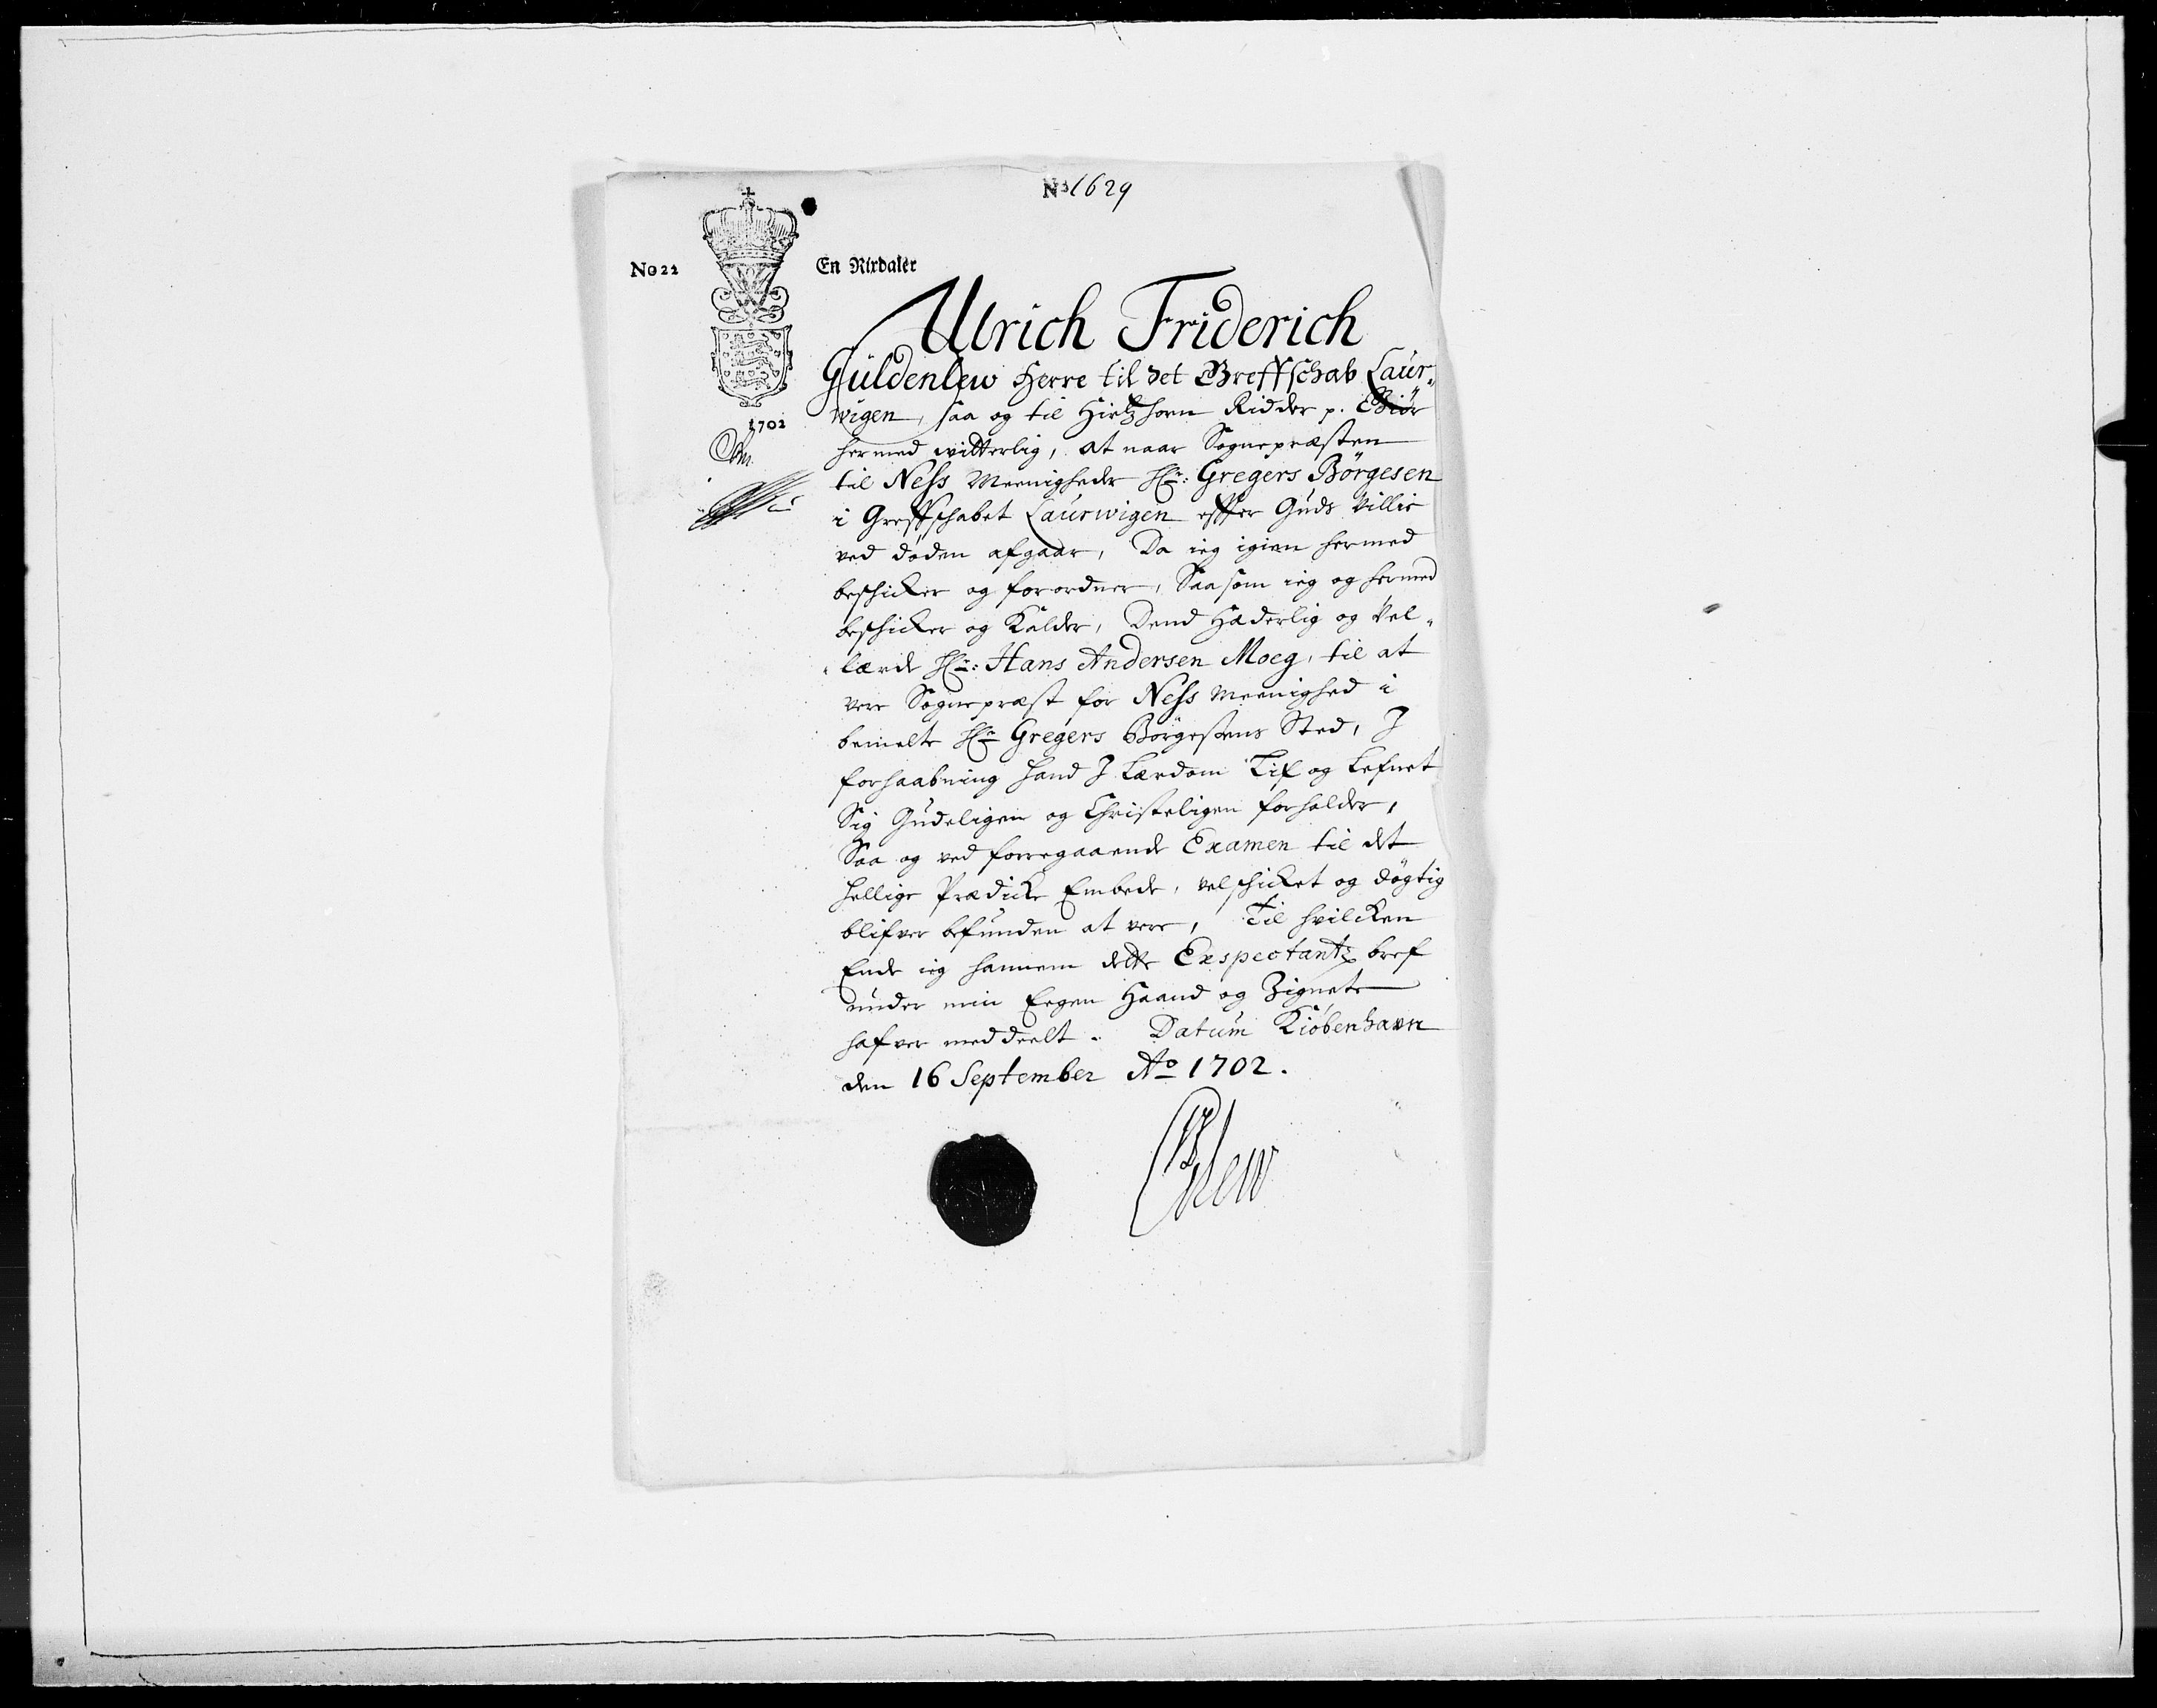 No 1629
No 22
En Rixdaler
1702
Ulrich Friderich
Güldenlew Herre til det Greffschab Laur-
wigen, saa og til Hirtzhorn Ridder p. Giör
hermed vitterlig, at naar Sognepræsten
til Ness Meenighede Hr: Gregers Börgesen
i Greffschabet Laurwigen effter Guds Villie
ved döden afgaar, Da ieg igien hermed
beschicker og forordner, Saasom ieg og hermed
beschicker og Kalder, Dend Hæderlig og Vel-
lærde Hr: Hans Andersen Moeg, til at
vere Sognepræst for Ness Meenighed i
bemelte Hr Gregers Börgesens Sted, I
forhaabning hand I Lærdom Lif og Lefnet
Sig Gudeligen og Christeligen forholder,
Saa og ved forregaaende Examen til det
hellige Prædicke Embede, velschicket og dögtig
blifver befunden at vere, Til hvilcken
Ende ieg hannem dette Exspectantz bref
under min Eegen Haand og Zignete
hafver meddeelt. Datum Kiöbenhavn
den 16 September Ao 1702.